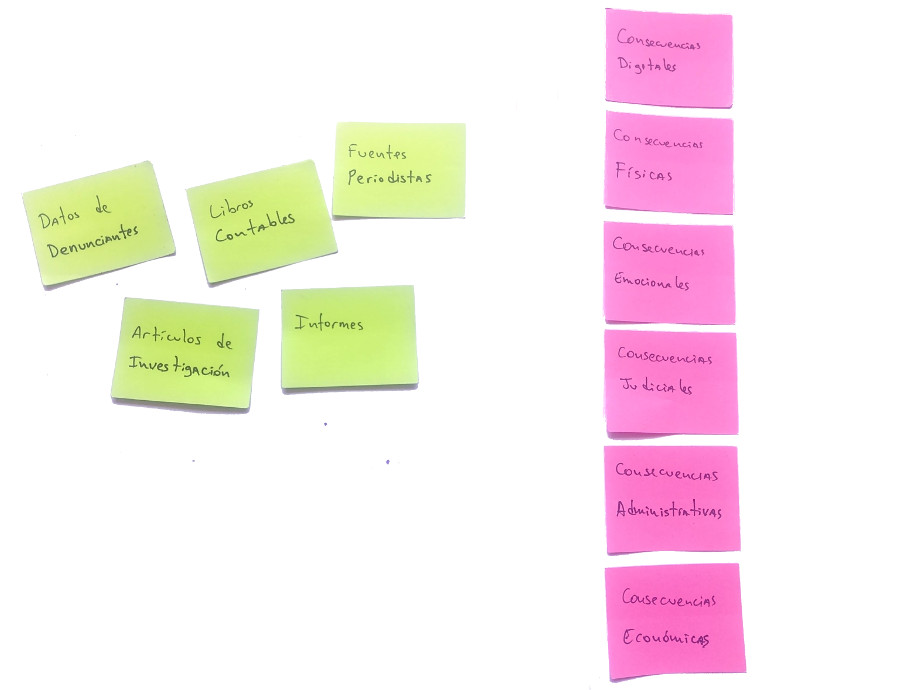 Datos de
Denunciantes
Libros
Contables
Fuentes
Periodistas
Artículos de
Investigación
Informes
Consecuencias
Digitales
Consecuencias
Físicas
Consecuencias
Emocionales
Consecuencias
Judiciales
Consecuencias
Administrativas
Consecuencias
Económicas